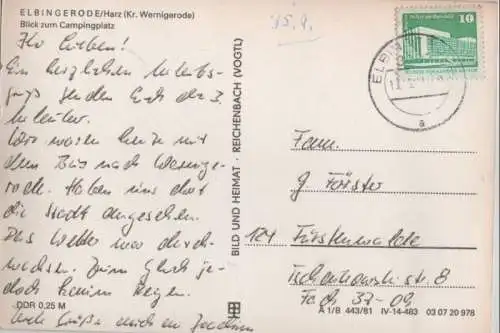 ELBINGERODE/Harz (Kr. Wernigerode)
Blick zum Campingplatz
15.9.
Ihr Lieben!
Ein herzlichen Urlaubs-
gruß senden Euch die 3
Urlauber.
Wir waren heute mit
dem Bus nach Wernige-
rode. Haben uns dort
die Stadt angesehen.
Das Wetter war durch-
wachsen. Zum Glück je-
doch keinen Regen.
Viele Grüße Joachim
DDR 0,25 M
BILD UND HEIMAT · REICHENBACH (VOGTL)
10
ELBIN
a
Fam.
G. Förster
124 Fürstenwalde
Tschaikowski str. 8
Fach 37-09
A 1/B 443/81 IV-14-483 03 07 20 978